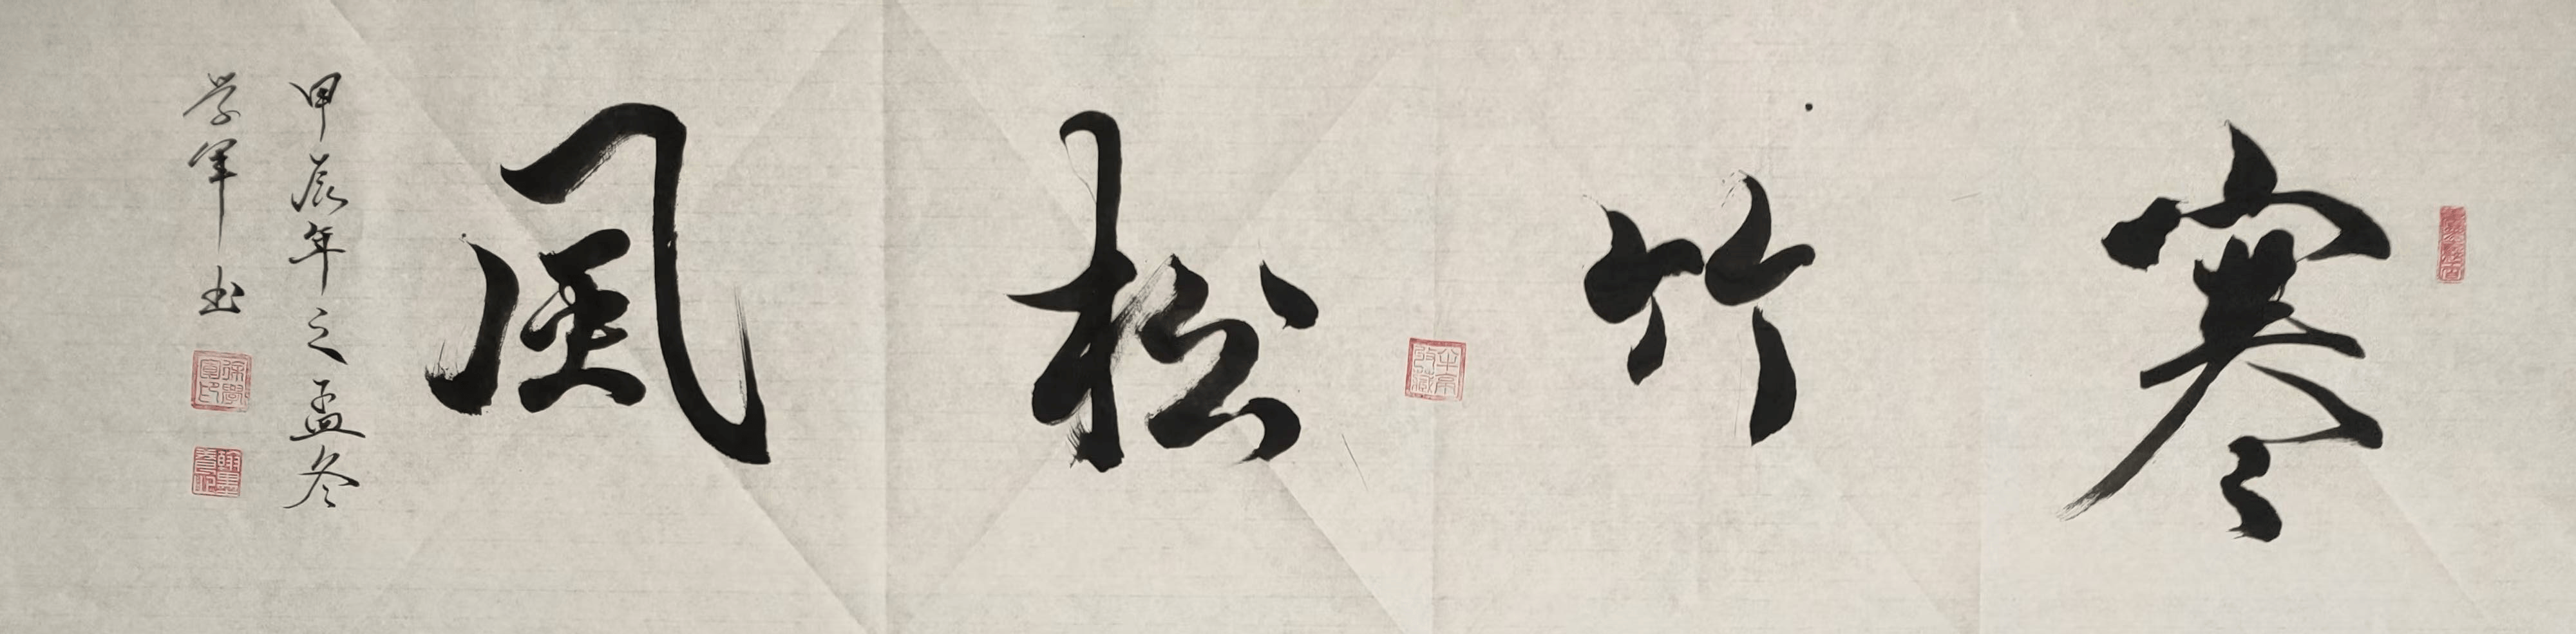 寒竹松風
甲辰年之孟冬
学军书
翰墨